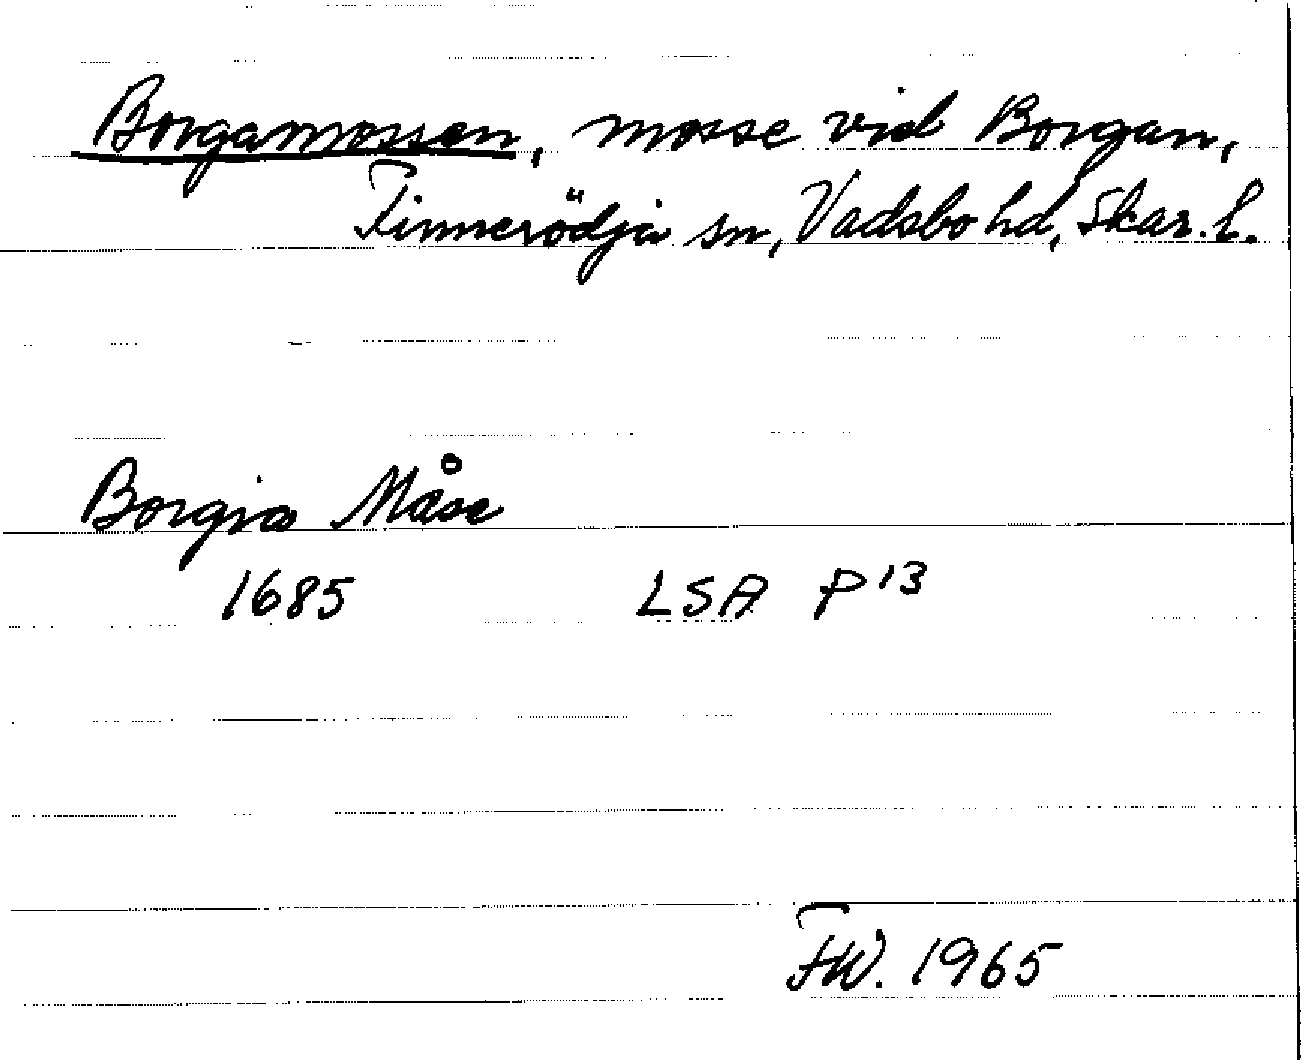 Borgamossen, mosse vid Borgan,
Finnerödja sn, Vadsbo hd, Skar. l.
Borgia Måse
1685 LSA P13
FW. 1965